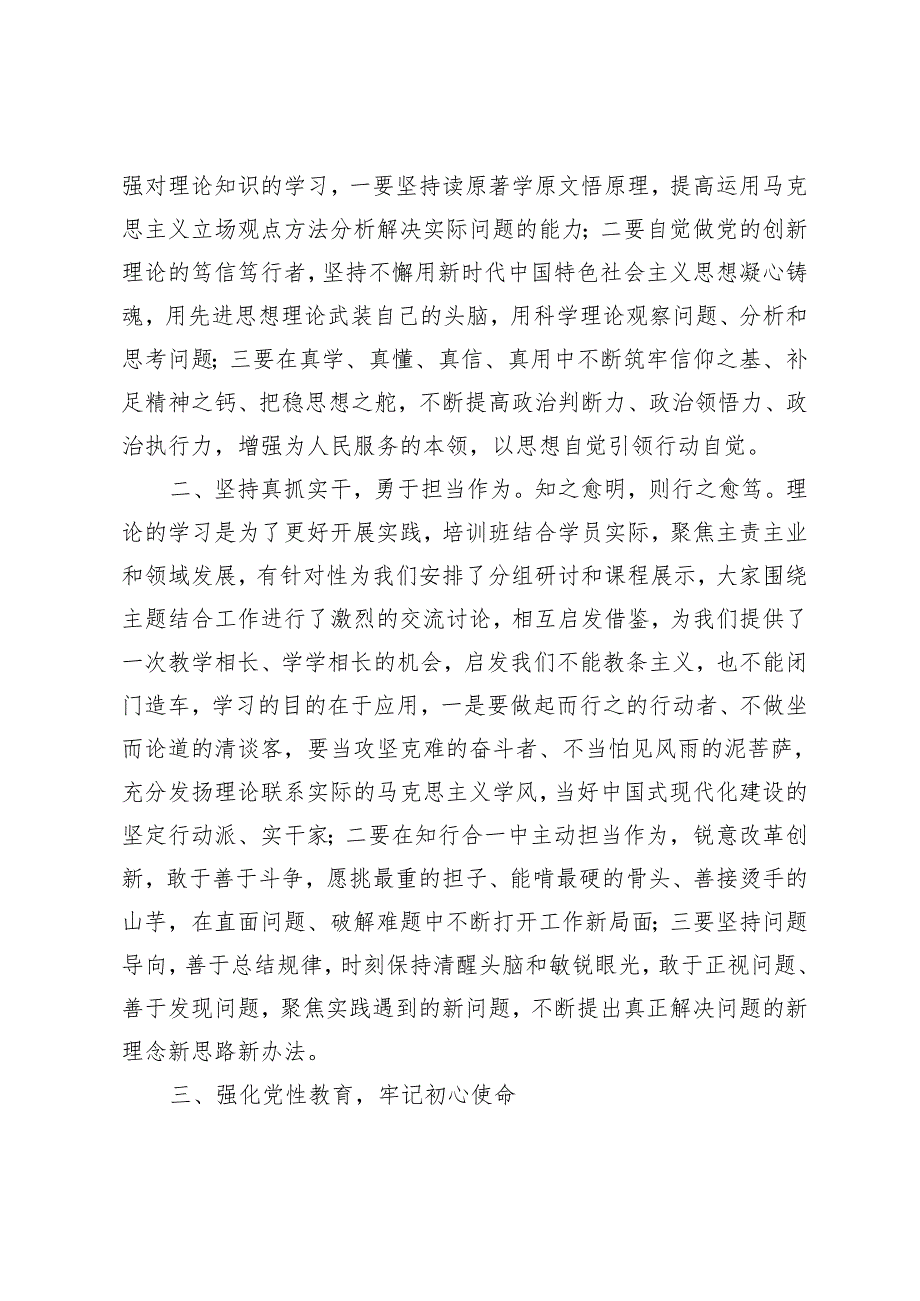 强对理论知识的学习，一要坚持读原著学原文悟原理，提高运用马克
思主义立场观点方法分析解决实际问题的能力；二要自觉做党的创新
理论的笃信笃行者，坚持不懈用新时代中国特色社会主义思想凝心铸
魂，用先进思想理论武装自己的头脑，用科学理论观察问题、分析和
思考问题；三要在真学、真懂、真信、真用中不断筑牢信仰之基、补
足精神之钙、把稳思想之舵，不断提高政治判断力、政治领悟力、政
治执行力，增强为人民服务的本领，以思想自觉引领行动自觉。
二、坚持真抓实干，勇于担当作为。知之愈明，则行之愈笃。理
论的学习是为了更好开展实践，培训班结合学员实际，聚焦主责主业
和领域发展，有针对性为我们安排了分组研讨和课程展示，大家围绕
主题结合工作进行了激烈的交流讨论，相互启发借鉴，为我们提供了
一次教学相长、学学相长的机会，启发我们不能教条主义，也不能闭
门造车，学习的目的在于应用，一是要做起而行之的行动者、不做坐
而论道的清谈客，要当攻坚克难的奋斗者、不当怕见风雨的泥菩萨，
充分发扬理论联系实际的马克思主义学风，当好中国式现代化建设的
坚定行动派、实干家；二要在知行合一中主动担当作为，锐意改革创
新，敢于善于斗争，愿挑最重的担子、能啃最硬的骨头、善接烫手的
山芋，在直面问题、破解难题中不断打开工作新局面；三要坚持问题
导向，善于总结规律，时刻保持清醒头脑和敏锐眼光，敢于正视问题、
善于发现问题，聚焦实践遇到的新问题，不断提出真正解决问题的新
理念新思路新办法。
三、强化党性教育，牢记初心使命